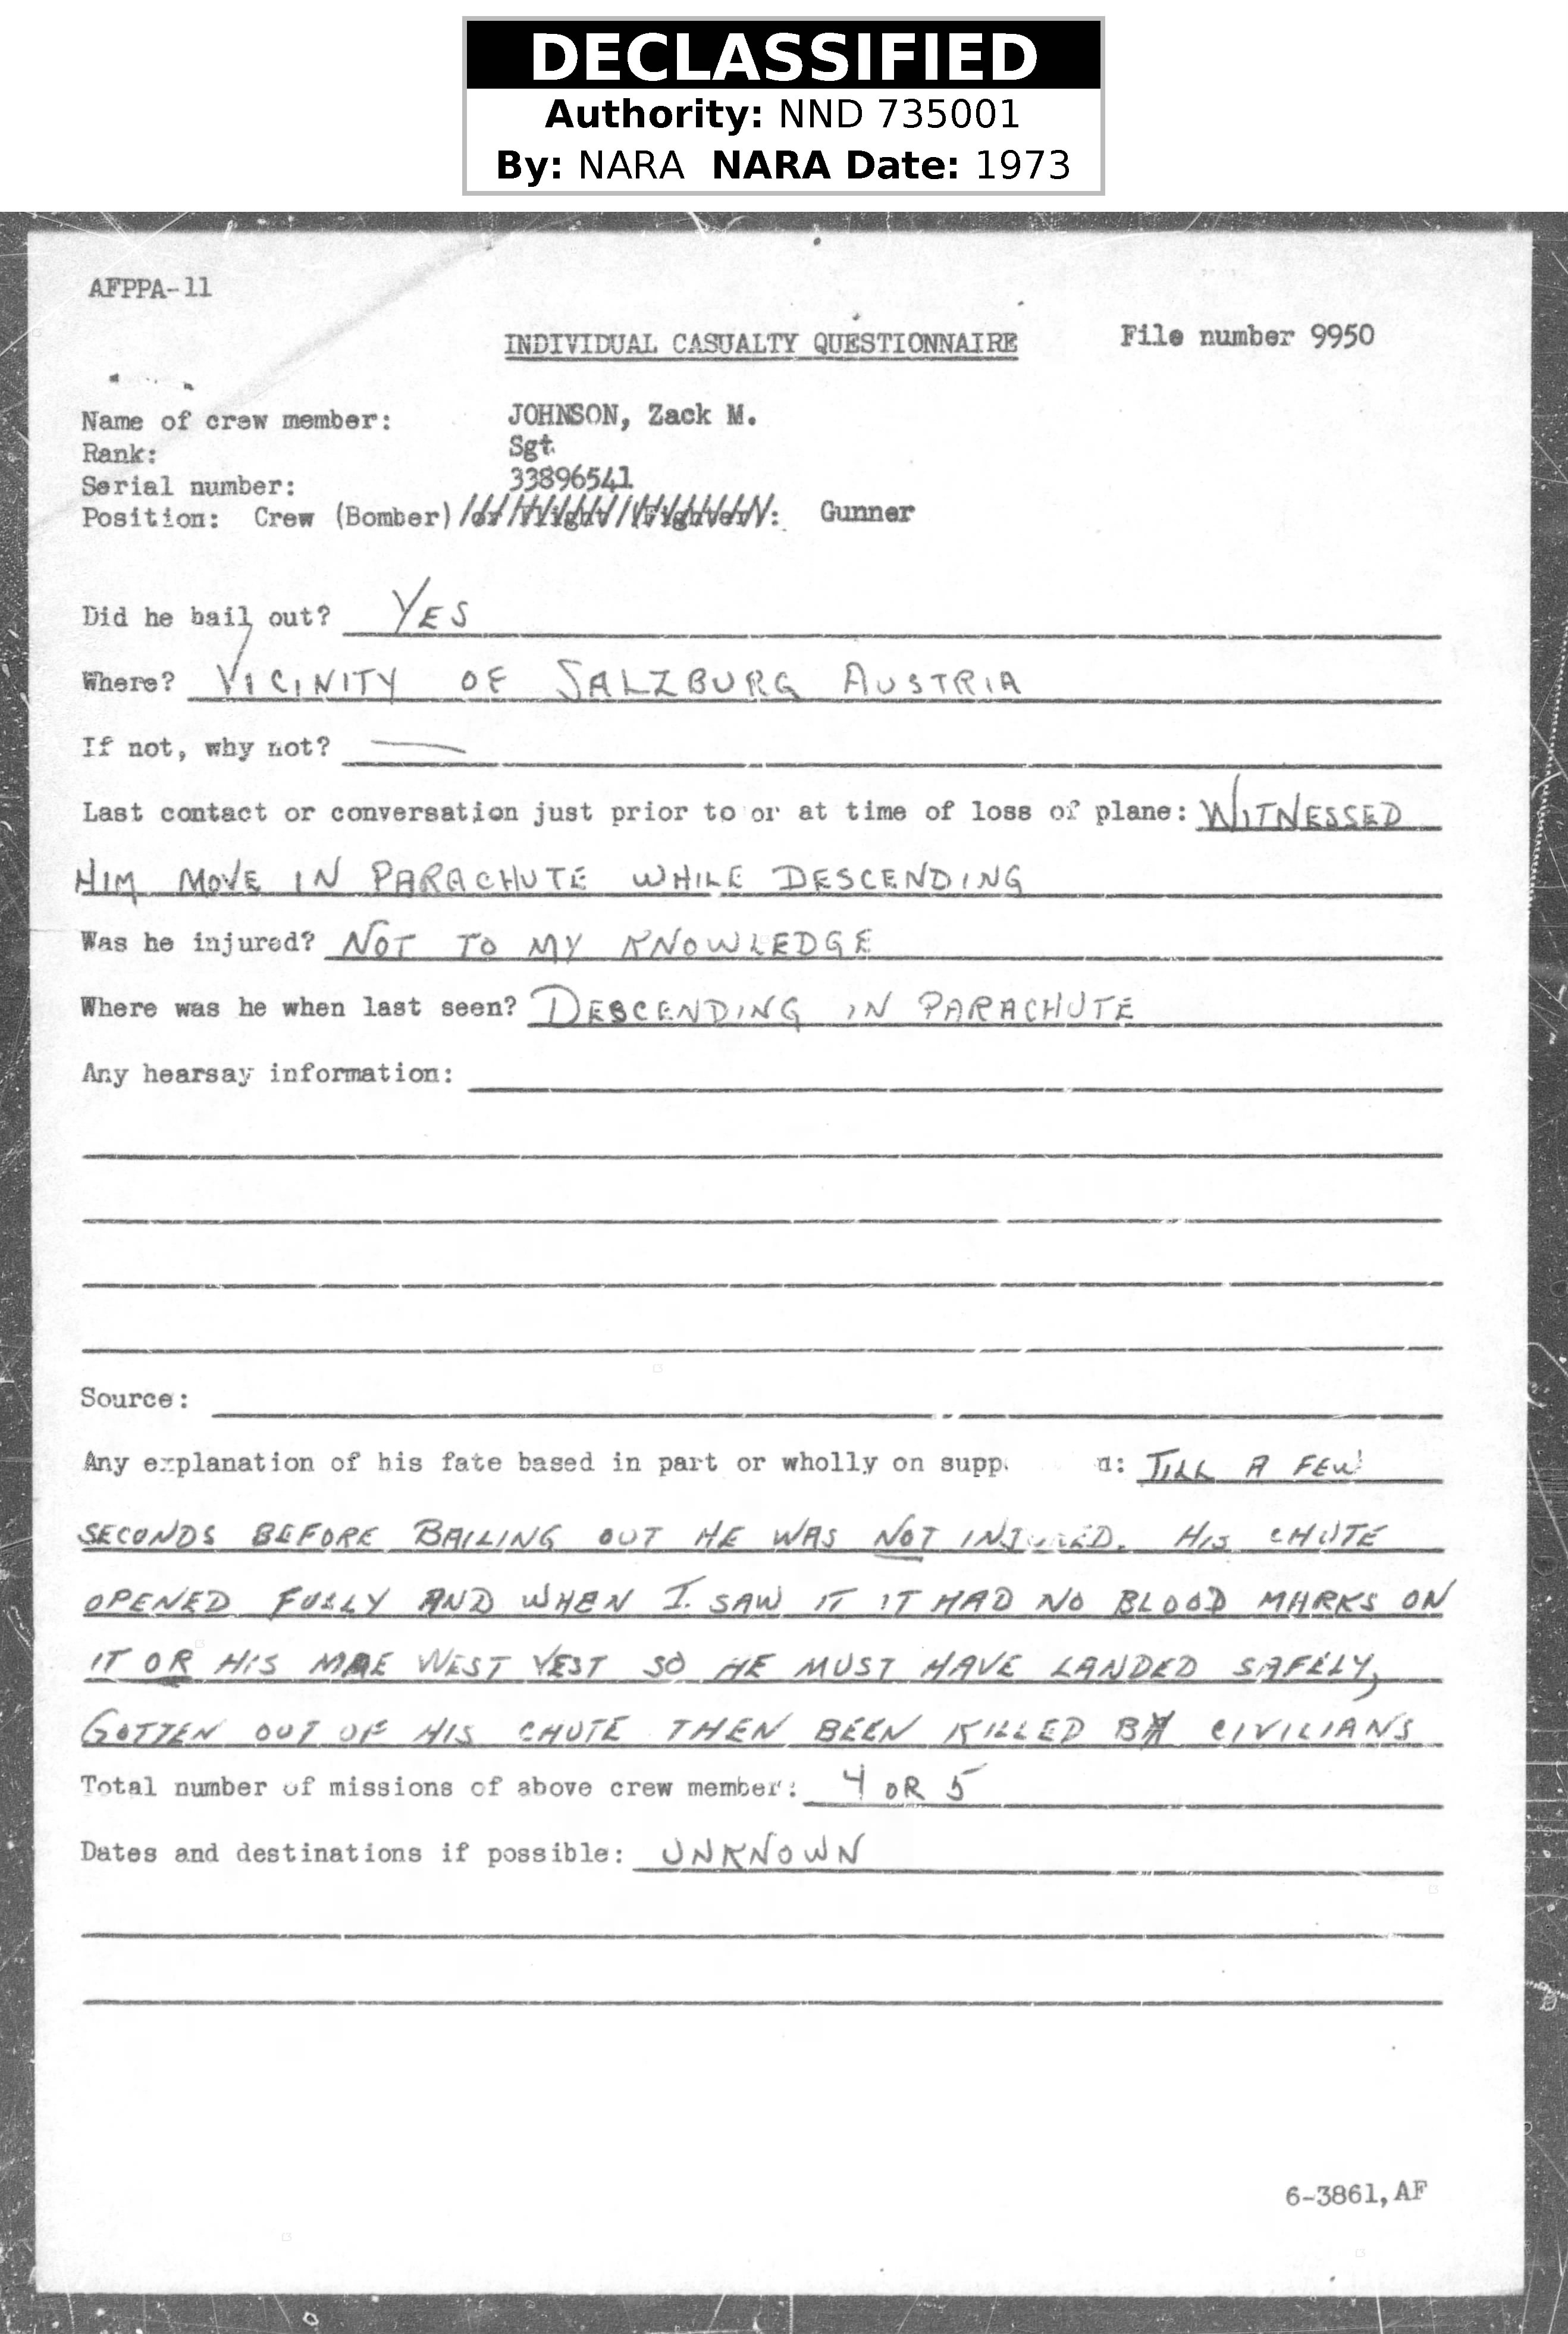 DECLASSIFIED
Authority: NND 735001
By: NARA NARA Date: 1973
AFPPA-11
INDIVIDUAL CASUALTY QUESTIONNAIRE File number 9950
Name of crew member: JOHNSON, Zack M.
Rank: Sgt.
Serial number: 33896541
Position: Crew (Bomber) or Flight (Fighter): Gunner
Did he bail out? YES
Where? VICINITY OF SALZBURG AUSTRIA
If not, why not? —
Last contact or conversation just prior to or at time of loss of plane: WITNESSED
HIM MOVE IN PARACHUTE WHILE DESCENDING
Was he injured? NOT TO MY KNOWLEDGE
Where was he when last seen? DESCENDING IN PARACHUTE
Any hearsay information:
Source:
Any explanation of his fate based in part or wholly on supp : TILL A FEW
SECONDS BEFORE BAILING OUT HE WAS NOT INJURED. HIS CHUTE
OPENED FULLY AND WHEN I SAW IT IT HAD NO BLOOD MARKS ON
IT OR HIS MAE WEST VEST SO HE MUST HAVE LANDED SAFELY,
GOTTEN OUT OF HIS CHUTE THEN BEEN KILLED BY CIVILIANS
Total number of missions of above crew member: 4 OR 5
Dates and destinations if possible: UNKNOWN
6-3861, AF